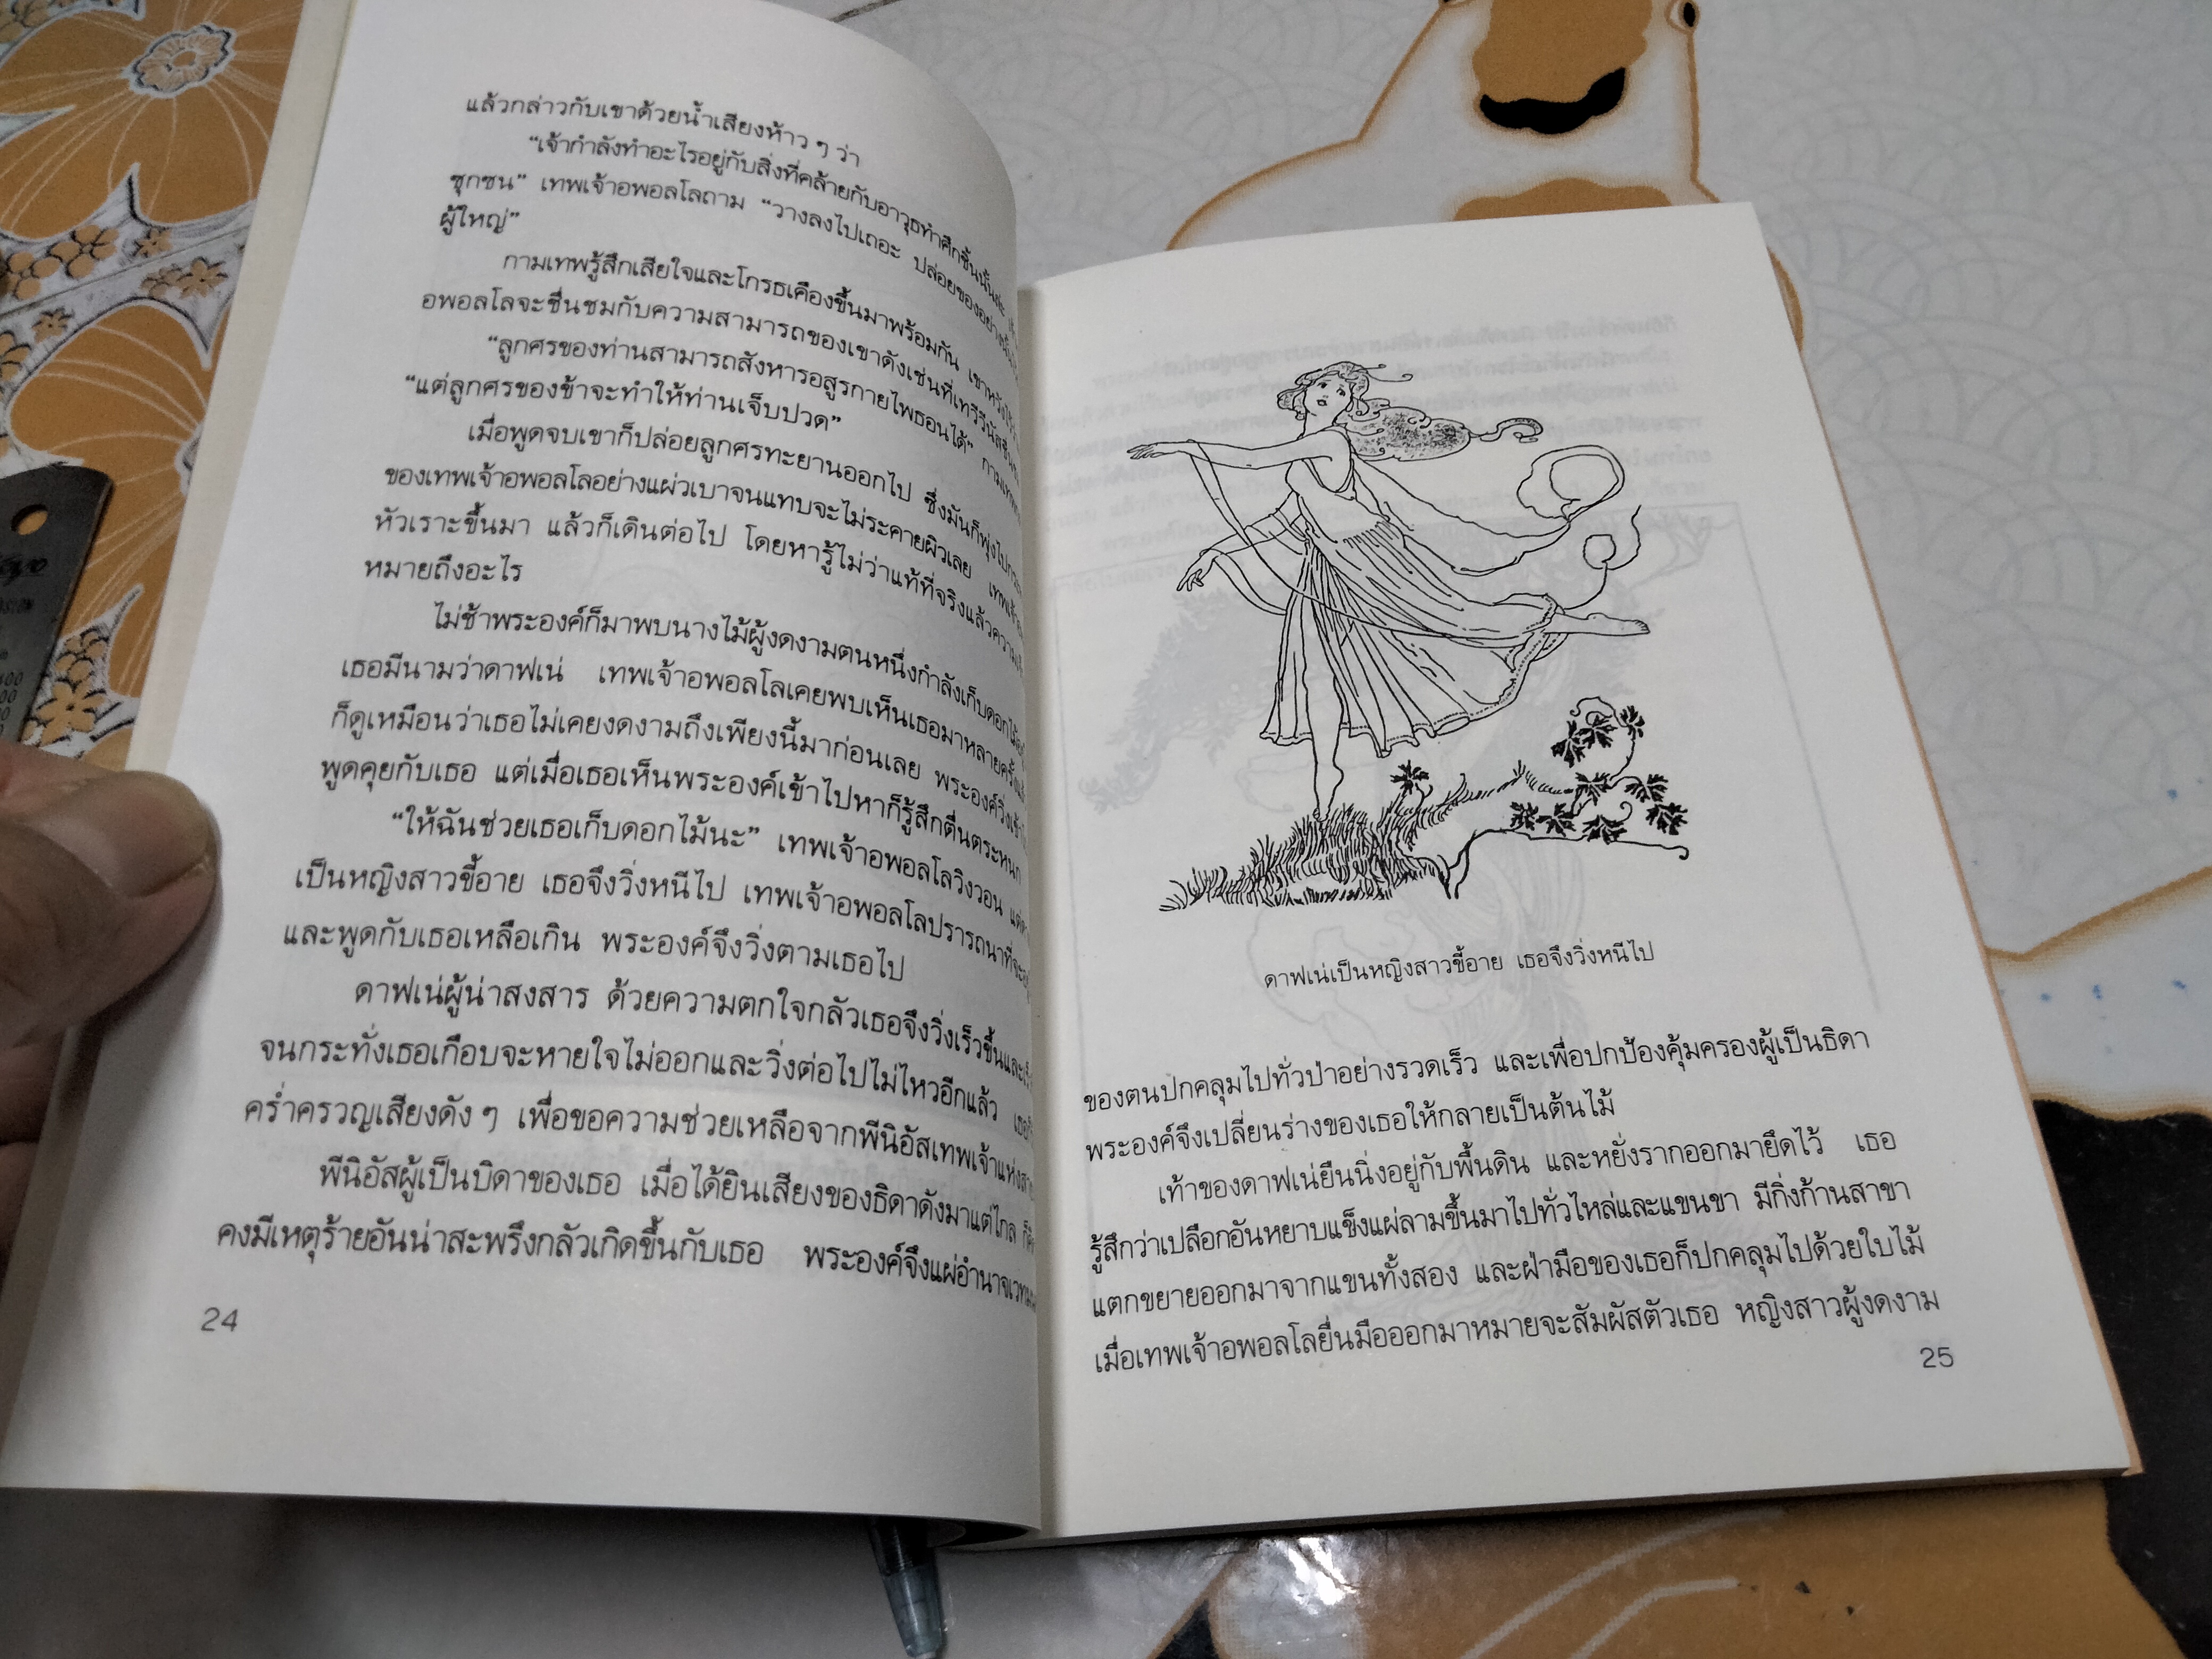 แล้วกล่าวกับเขาด้วยน้ำเสียงห้าว ๆ ว่า
“เจ้ากำลังทำอะไรอยู่กับสิ่งที่คล้ายกับอาวุธทำศึกชิ้นนั้นล่ะ
ซุกซน” เทพเจ้าอพอลโลถาม “วางลงไปเถอะ ปล่อยของอย่างนั้น
ผู้ใหญ่”
กามเทพรู้สึกเสียใจและโกรธเคืองขึ้นมาพร้อมกัน เขาหวัง
อพอลโลจะชื่นชมกับความสามารถของเขาดังเช่นที่เทรีรีนัส
“ลูกศรของท่านสามารถสังหารอสูรกายไพธอนได้” กามเทพ
“แต่ลูกศรของข้าจะทำให้ท่านเจ็บปวด”
เมื่อพูดจบเขาก็ปล่อยลูกศรทะยานออกไป ซึ่งมันก็พุ่งไป
ของเทพเจ้าอพอลโลอย่างแผ่วเบาจนแทบจะไม่ระคายผิวเลย
หัวเราะขึ้นมา แล้วก็เดินต่อไป โดยหารู้ไม่ว่าแท้ที่จริงแล้ว
หมายถึงอะไร
ไม่ช้าพระองค์ก็มาพบนางไม้ผู้งดงามตนหนึ่งกำลังเก็บดอกไม้
เธอมีนามว่าดาฟเน่ เทพเจ้าอพอลโลเคยพบเห็นเธอมาหลายครั้ง
ก็ดูเหมือนว่าเธอไม่เคยงดงามถึงเพียงนี้มาก่อนเลย พระองค์วิ่งเข้า
พูดคุยกับเธอ แต่เมื่อเธอเห็นพระองค์เข้าไปหาก็รู้สึกตื่นตระหนก
“ให้ฉันช่วยเธอเก็บดอกไม้นะ” เทพเจ้าอพอลโลวิงวอน
เป็นหญิงสาวขี้อาย เธอจึงวิ่งหนีไป เทพเจ้าอพอลโลปรารถนาที่จะ
และพูดกับเธอเหลือเกิน พระองค์จึงวิ่งตามเธอไป
ดาฟเน่ผู้น่าสงสาร ด้วยความตกใจกลัวเธอจึงวิ่งเร็วขึ้นและ
จนกระทั่งเธอเกือบจะหายใจไม่ออกและวิ่งต่อไปไม่ไหวอีกแล้ว
คร่ำครวญเสียงดัง ๆ เพื่อขอความช่วยเหลือจากพีนิอัสเทพเจ้าแห่ง
พีนิอัสผู้เป็นบิดาของเธอ เมื่อได้ยินเสียงของธิดาดังมาแต่ไกล
คงมีเหตุร้ายอันน่าสะพรึงกลัวเกิดขึ้นกับเธอ พระองค์จึงแผ่อำนาจ
24
ดาฟเน่เป็นหญิงสาวขี้อาย เธอจึงวิ่งหนีไป
ของตนปกคลุมไปทั่วป่าอย่างรวดเร็ว และเพื่อปกป้องคุ้มครองผู้เป็นธิดา
พระองค์จึงเปลี่ยนร่างของเธอให้กลายเป็นต้นไม้
เท้าของดาฟเน่ยืนนิ่งอยู่กับพื้นดิน และหยั่งรากออกมายึดไว้ เธอ
รู้สึกว่าเปลือกอันหยาบแข็งแผ่ลามขึ้นมาไปทั่วไหล่และแขนขา มีกิ่งก้านสาขา
แตกขยายออกมาจากแขนทั้งสอง และฝ่ามือของเธอก็ปกคลุมไปด้วยใบไม้
เมื่อเทพเจ้าอพอลโลยื่นมือออกมาหมายจะสัมผัสตัวเธอ หญิงสาวผู้งดงาม
25